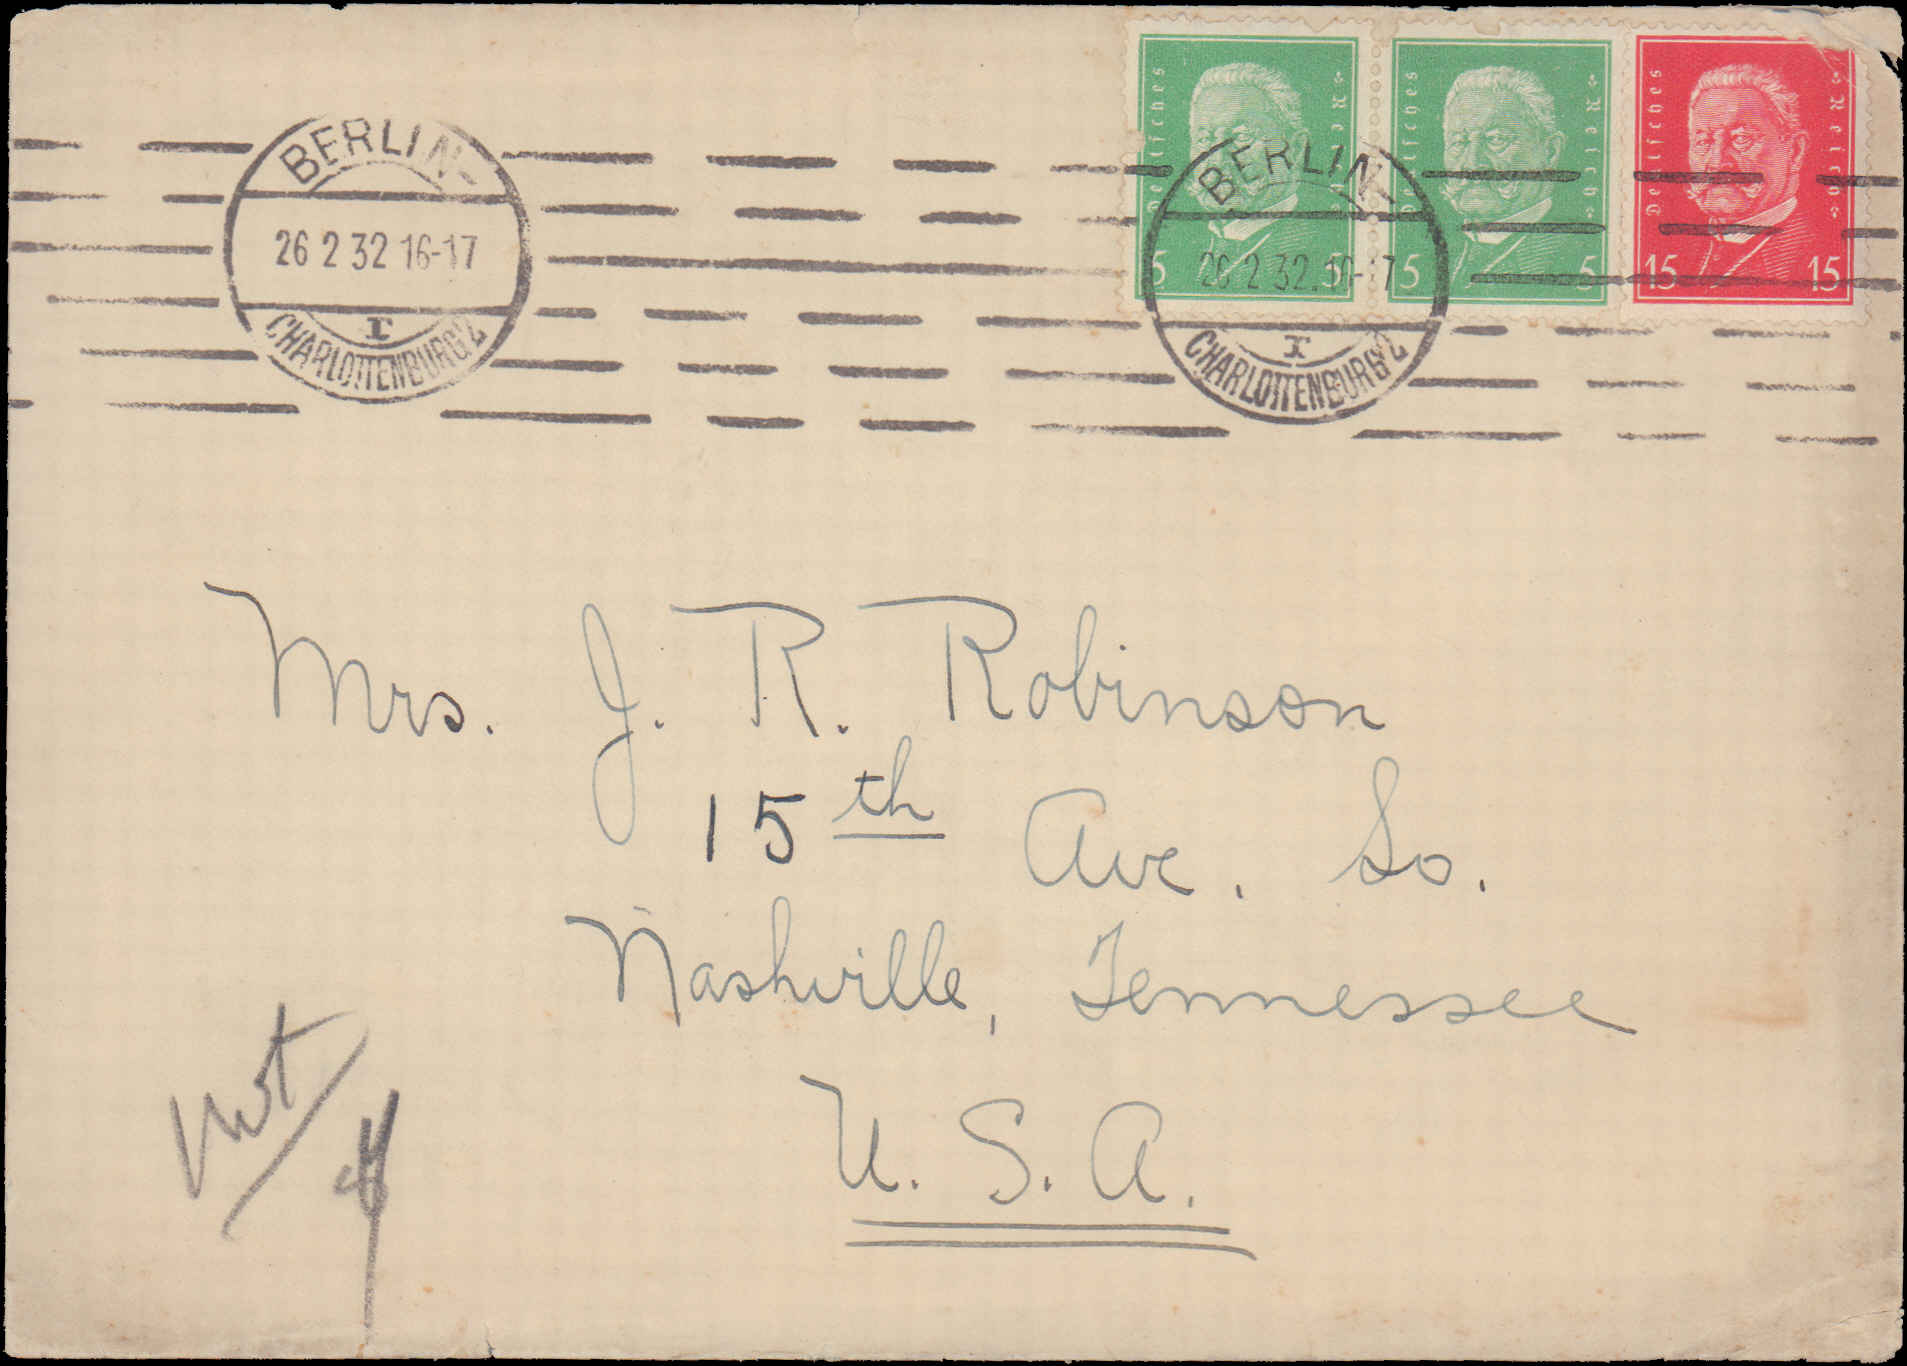 BERLIN-
26 2 32 16-17
CHARLOTTENBURG 2
Deutsches Reich
5 5
Deutsches Reich
5 5
Deutsches Reich
15 15
BERLIN-
26 2 32.16-17
CHARLOTTENBURG 2
Mrs. J. R. Robinson
15th Ave. So.
Nashville, Tennessee
U. S. A.